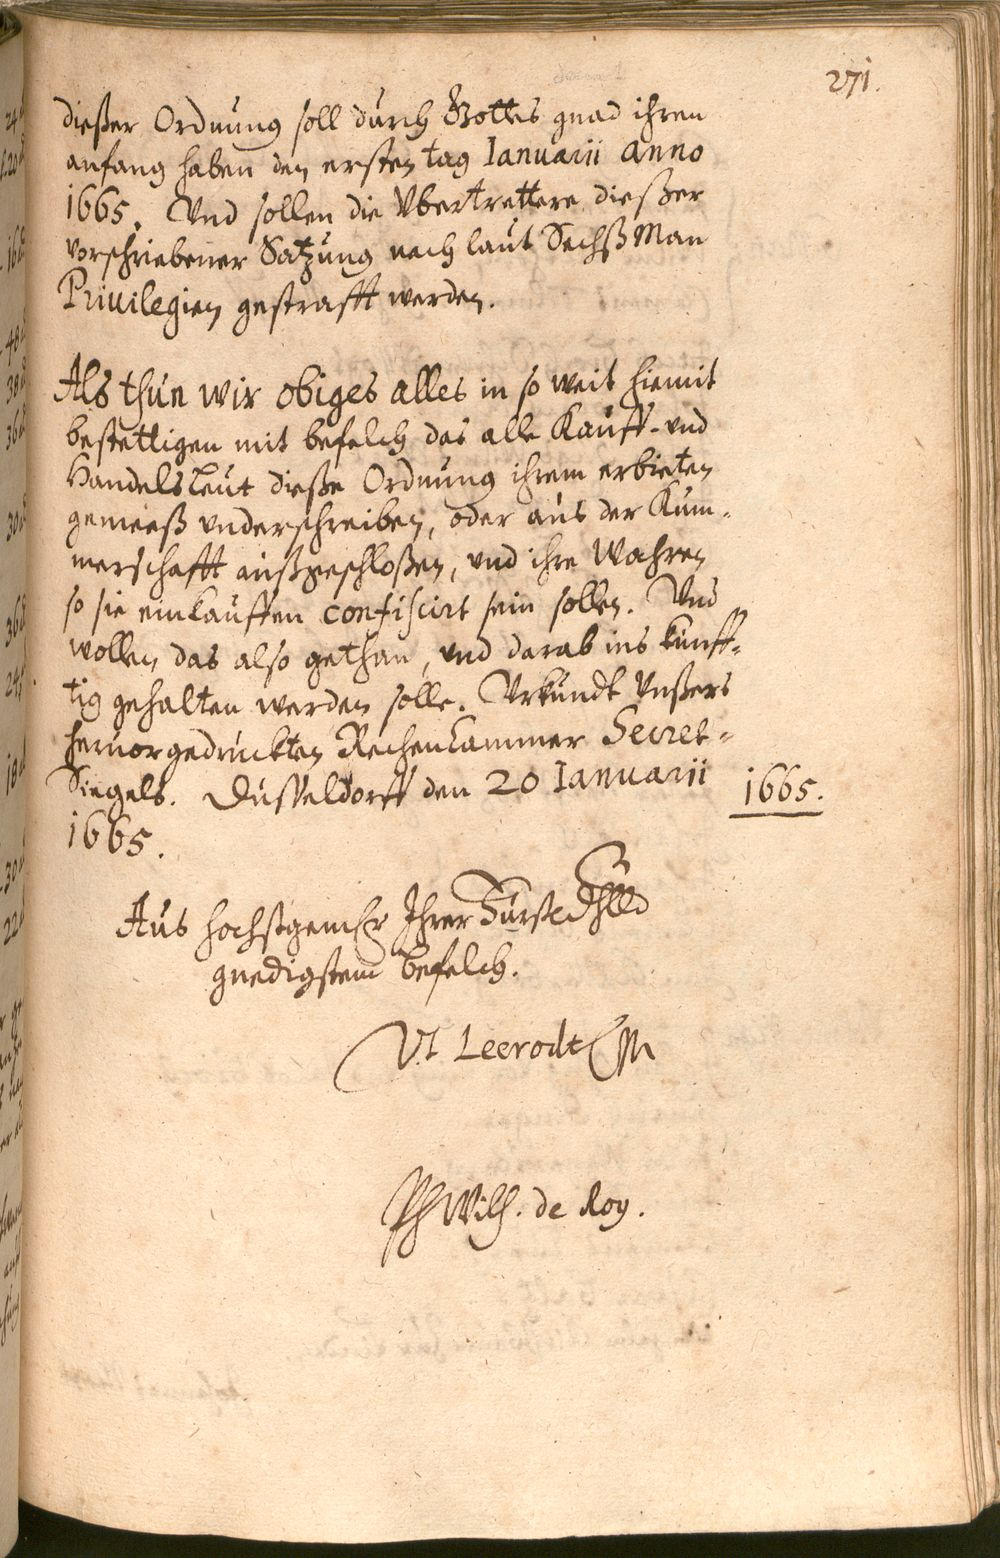 271.
dießer Ordnung soll durch Gottes gnad ihren
anfang haben den ersten tag Ianuarii anno
1665. Vnd sollen die Vbertrettere dießer
vorschriebener Satzung nach laut Sechß Man
Priuilegien gestrafft werden.
Als thun wir obiges alles in so weit hiemit
bestettigen mit befelch das alle Kauff- und
Handelsleut dieße Ordnung ihrem erbieten
gemeeß vnderschreiben, oder aus der Kum-
merschafft außgeschloßen, und ihre Wahren
so sie einkauffen confiscirt sein sollen. Vnd
wollen das also gethan, und darab ins künff-
tig gehalten werden solle. Vrkundt Vnßers
heruorgedruckten Rechenkammer Secret-
Siegels. Düsseldorff den 20 Ianuarii
1665.
1665.
Aus hochstgemlr Ihrer Furstl Dhlld
gnedigstem befelch.
Vt Leerodt
Ph Wilh. de Roy.